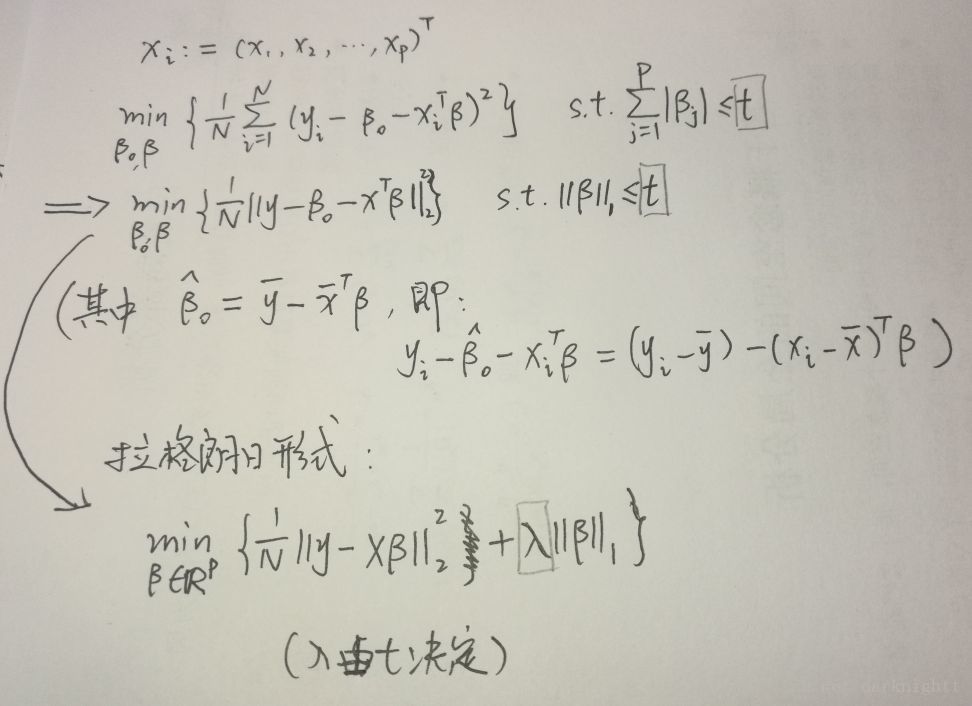 x_i := (x_1, x_2, ⋯, x_p)^T
min_{β_0,β} { 1/N ∑_{i=1}^{N} (y_i − β_0 − x_i^T β)^2 } s.t. ∑_{j=1}^{p} |β_j| ≤ t
⟹ min_{β_0,β} { 1/N ||y − β_0 − x^T β||_2^2 } s.t. ||β||_1 ≤ t
(其中 β̂_0 = ȳ − x̄^T β , 即:
y_i − β̂_0 − x_i^T β = (y_i − ȳ) − (x_i − x̄)^T β )
拉格朗日形式:
min_{β∈ℝ^p} { 1/N ||y − Xβ||_2^2 + λ||β||_1 }
(λ由t决定)